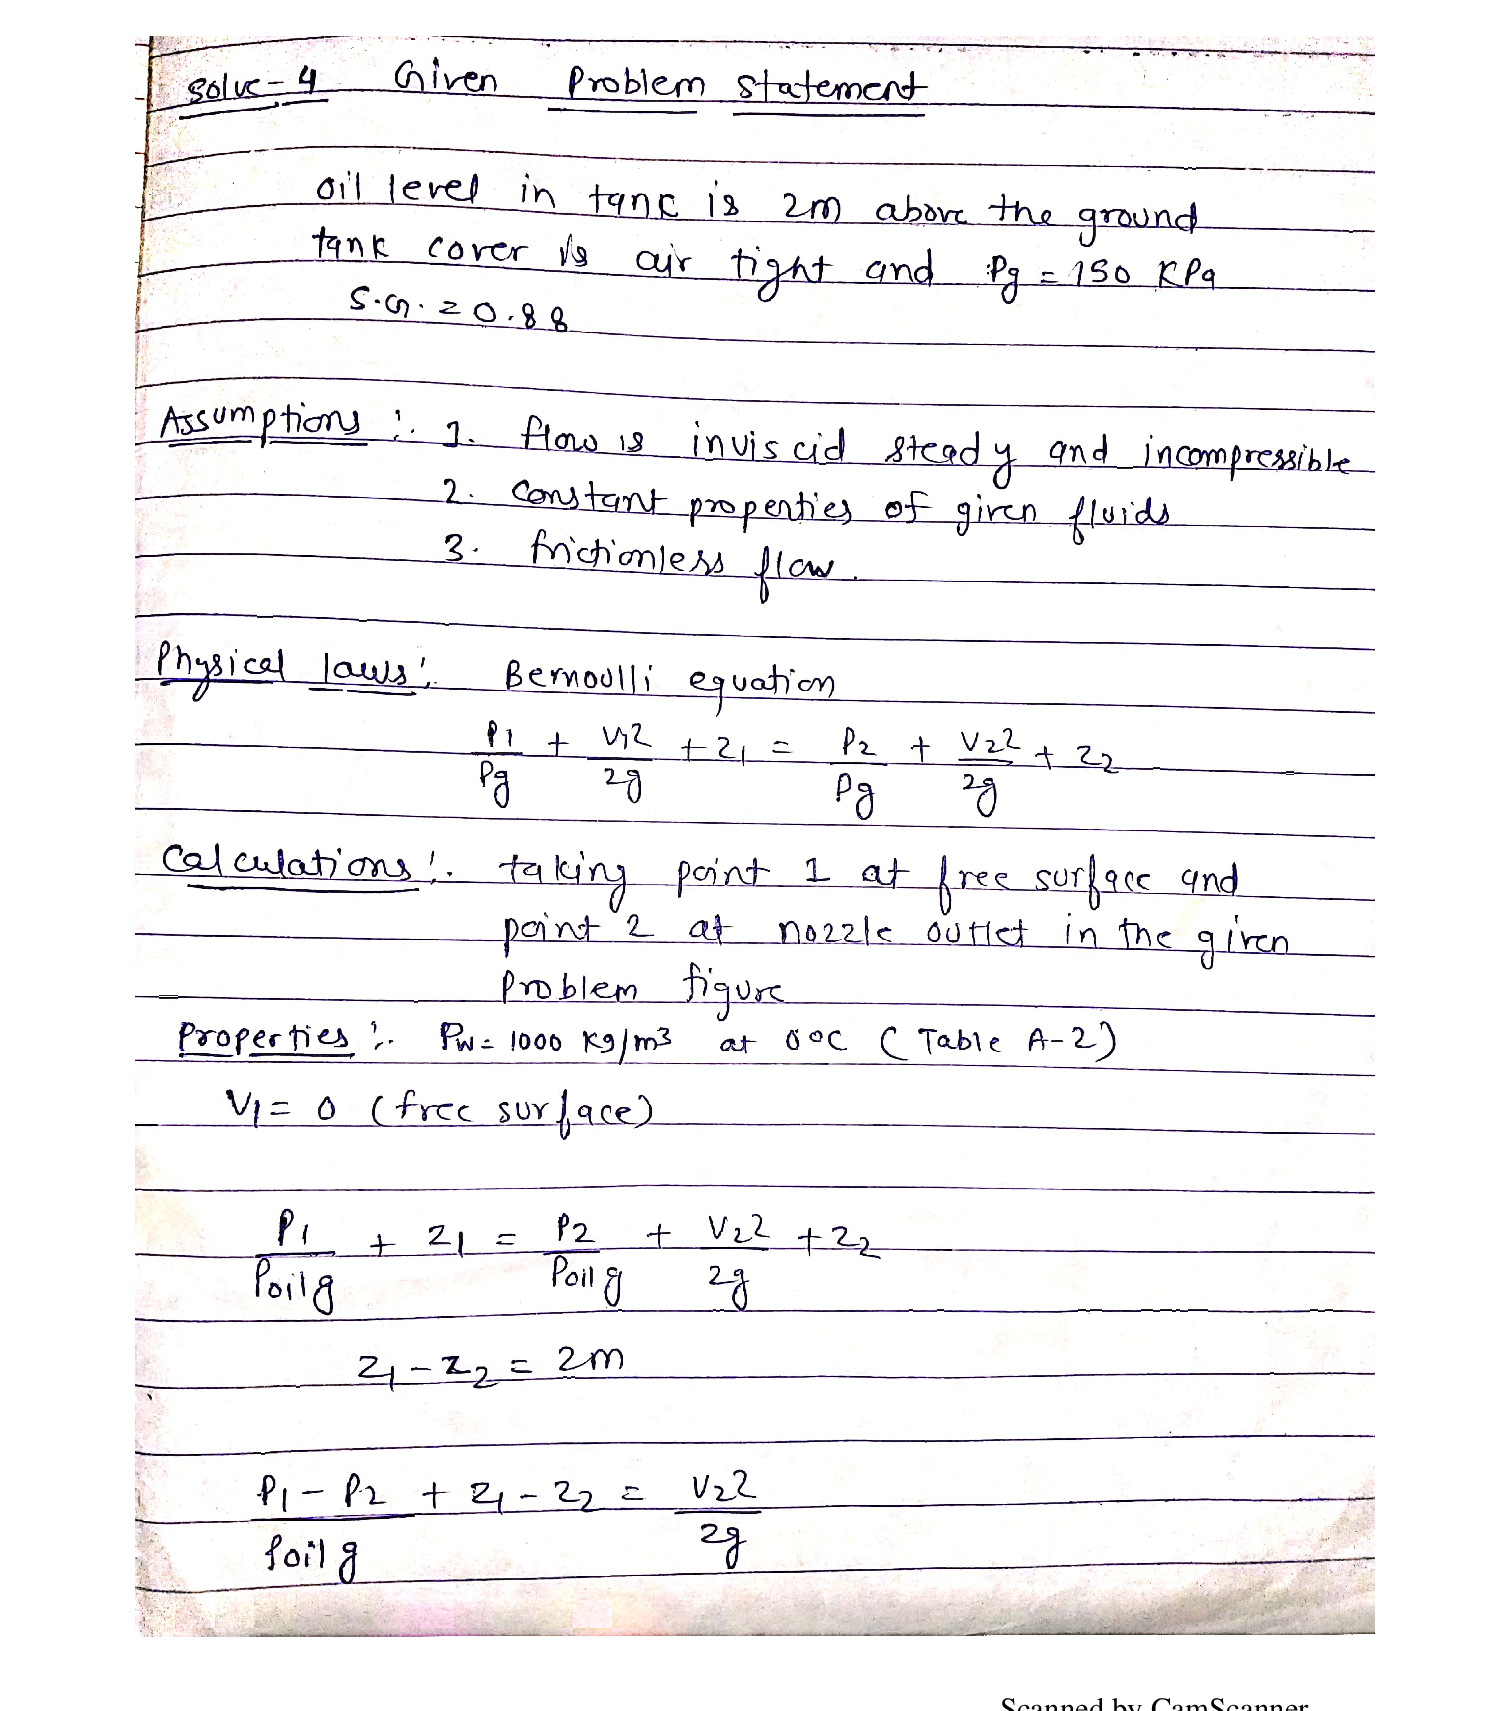 Solve-4 Given Problem statement
oil level in tank is 2m above the ground
tank cover is air tight and Pg = 150 KPa
S.G. = 0.88
Assumptions :. 1. flow is inviscid steady and incompressible
2. Constant properties of given fluids
3. frictionless flow.
Physical laws :. Bernoulli equation
P1/ρg + V1²/2g + z1 = P2/ρg + V2²/2g + z2
Calculations :. taking point 1 at free surface and
point 2 at nozzle outlet in the given
Problem figure
Properties :. ρw = 1000 kg/m3 at 0°C ( Table A-2)
V1 = 0 (free surface)
P1/ρoil g + z1 = P2/ρoil g + V2²/2g + z2
z1 - z2 = 2m
P1 - P2/ρoil g + z1 - z2 = V2²/2g
Scanned by CamScanner